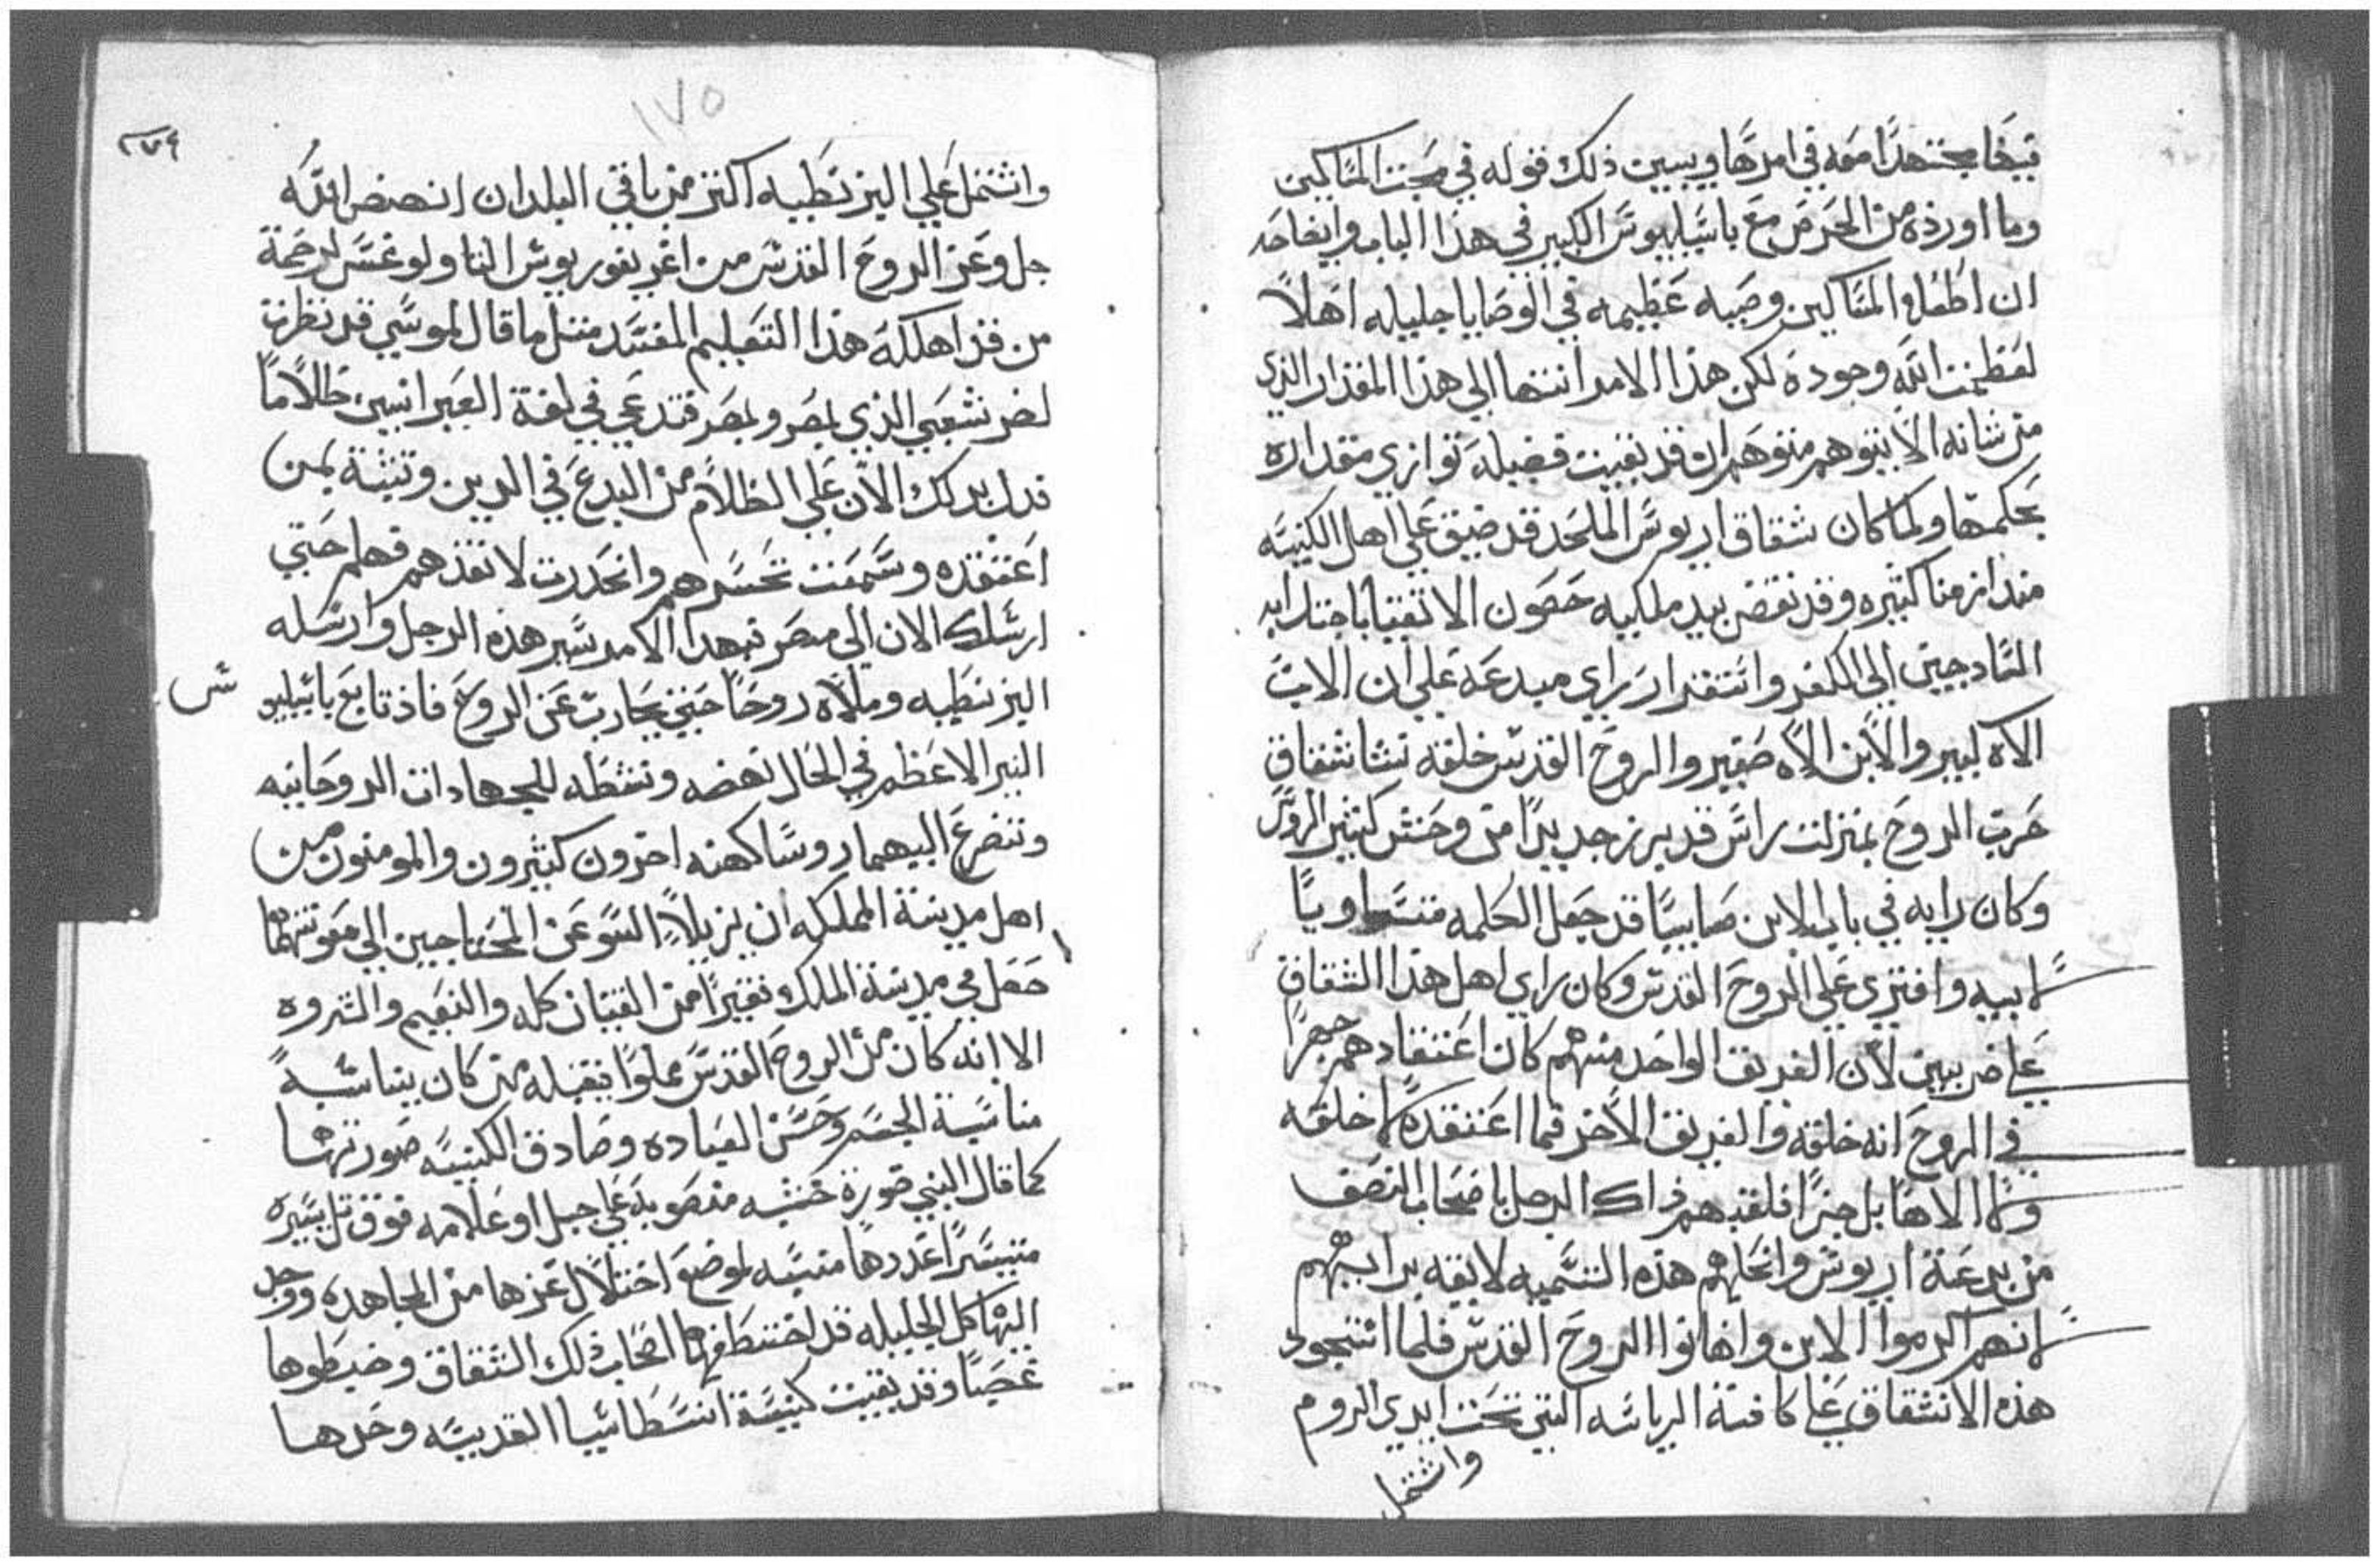 فيها مجتهدًا معه في امرها ويبين ذلك قوله في محبت المساكين
وما اورده من الحرص مع باسيليوس الكبير في هذا الباب وايضاحه
ان اطعام المساكين وصيه عظيمه في الوصايا جليله اهلًا
لعظمت الله وجوده لكن هذا الامر انتها الي هذا المقدار الذي
من شانه الا يتوهم متوهم ان قد بقيت فضيله توازي مقداره
بحكمتها ولما كان شقاق اريوس الملحد قد ضيق علي اهل الكنيسه
منذ ازمنا كثيره وقد نقض بيد ملكيه حصون الاتقيا باجتدابه
السادجين الي الكفر واستقرار راي مبدعه علي ان الاب
الاه كبير والابن الاه صغير والروح القدس خلقه نشا شقاق
حرب الروح بمنزلت راس قد برز جديدًا من وحش كثير الروس
وكان رايه في باب الابن صايبًا قد جعل الكلمه متساويًا
لابيه وافتري علي الروح القدس وكان راي اهل هذا الشقاق
علي ضربين لان الفريق الواحد منهم كان اعتقادهم جهرًا
في الروح انه خلقه والفريق الاخر فما اعتقده لا خلقه
ولا الاهًا بل حرًا فلقبهم ذاك الرجل باصحاب النصف
من بدعة اريوس وانحلهم هذه التسميه لايقه برايهم
لانهم اكرموا الابن واهانوا الروح القدس فلما استحود
هذه الانشقاق علي كافة الرياسه التي تحت ايدي الروم
واشتمل
١٧٥
٢٧٤
واشتمل علي البزنطيه اكتر من باقي البلدان انهض الله
جل وعز الروح القدس من اغريغوريوس الثاولوغس لرحمة
من قد اهلكه هذا التعليم المفسد مثل ما قال لموسي قد نظرت
لضر شعبي الذي بمصر ومصر فتدعي في لغة العبرانيين ظلامًا
فدل بدلك الان علي الظلام من البدع في الدين وتيثة لمن
اعتقده وسمعت تحسرهم وانحدرت لانقذهم فهلم حتي
ارسلك الان الي مصر فبهدا الامر سير هذه الرجل وارسله
البزنطيه وملاه روحًا حتي يحارب عن الروح فاذ تابع باسيليو س
النير الاعظم في الحال نهضه ونشطه للجهادات الروحانيه
وتضرع اليهما روسا كهنه اخرون كثيرون والمومنون من
اهل مدينة المملكه ان يزيلا السو عن المحتاجين الي معونتهما
حصل في مدينة الملك فقيرًا من القتيان كله والنعيم والثروه
الا انه كان من الروح القدس مملوًا فقبله من كان يناسبه
مناسبة الجسم وحسن العباده وصادف الكنيسه صورتها
كما قال النبي صورة خشبه منصوبه علي جبل او علامه فوق تل يسيره
متيسرًا عددها منسيه لموضع اختلال عزها من المجاهده ووجد
الهياكل الجليله قد اختطفها اصحاب ذلك الشقاق وضبطوها
غصبًا وقد بقيت كنيسة انسطاسيا القديسه وحدها